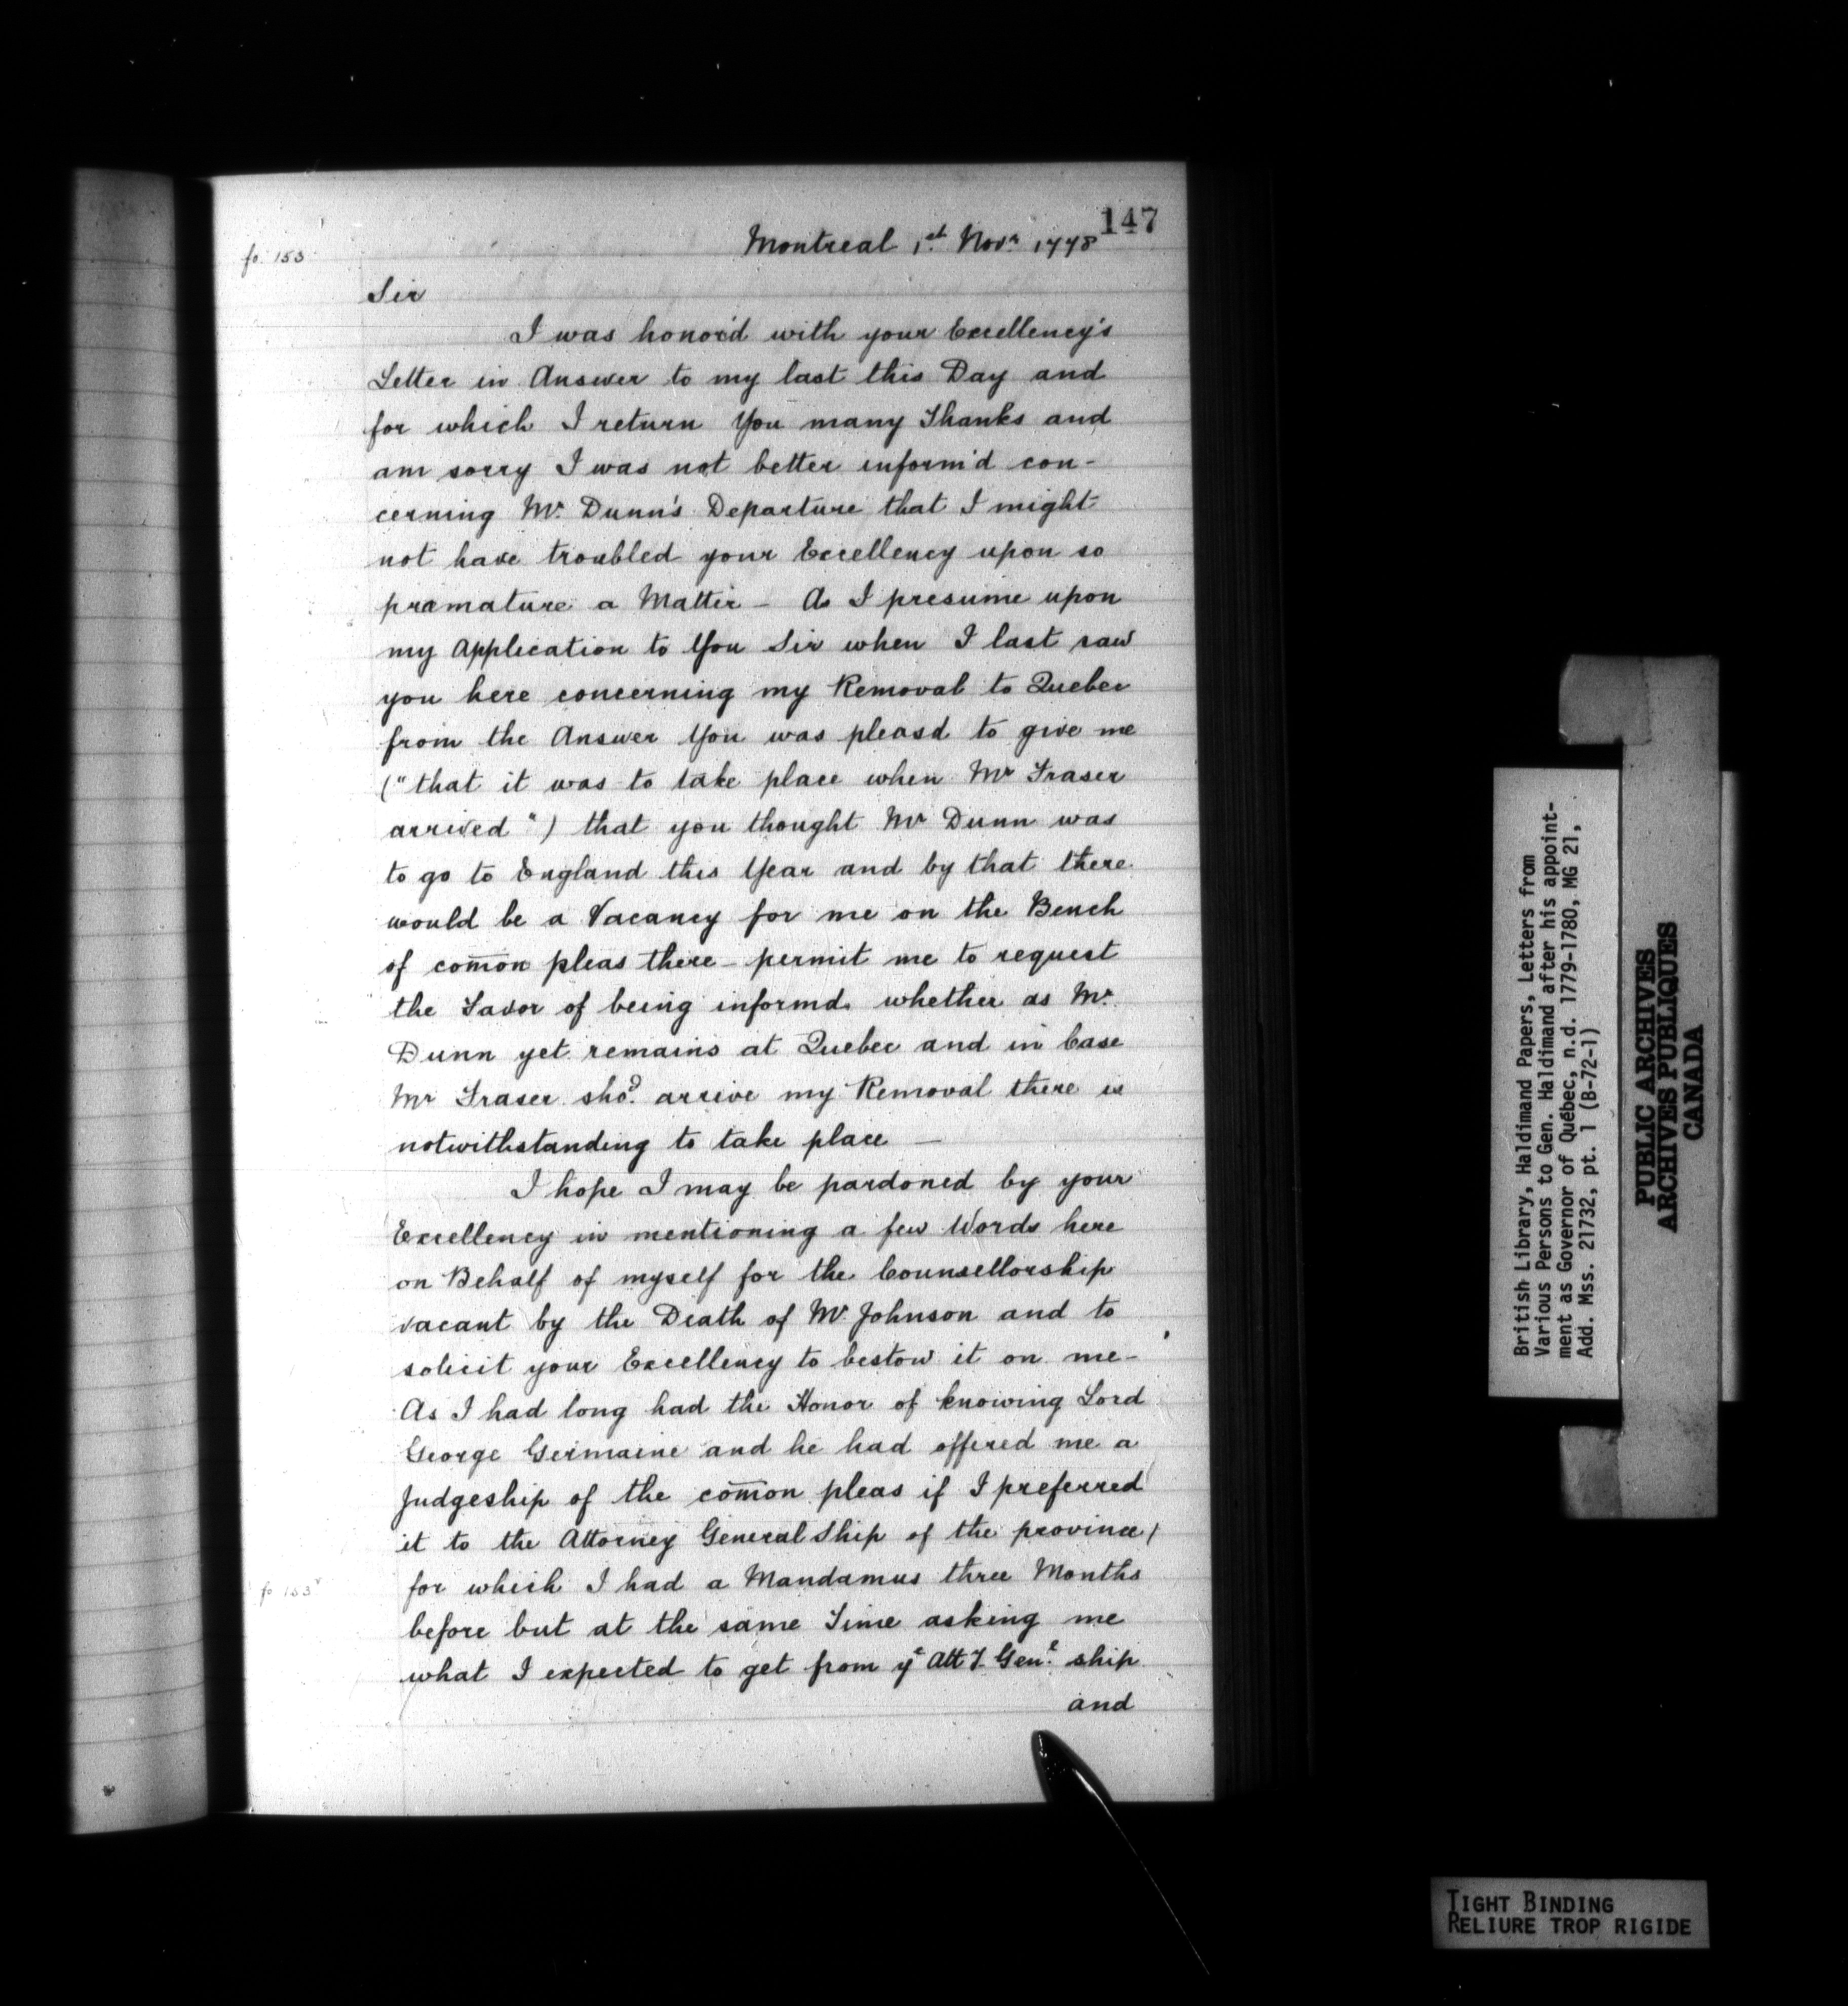 147
Montreal 1st. Novr 1778
fo. 153
Sir
I was honor'd with your Excellency's
Letter in Answer to my last this Day and
for which I return You many Thanks and
am sorry I was not better inform'd con-
cerning Mr. Dunn's Departure that I might
not have troubled your Excellency upon so
premature a Matter - As I presume upon
my Application to You Sir when I last saw
you here concerning my Removal to Quebec
from the Answer You was pleasd to give me
("that it was to take place when Mr Fraser
arrived") that you thought Mr Dunn was
to go to England this Year and by that there
would be a Vacancy for me on the Bench
of com̅on pleas there - permit me to request
the Favor of being informd whether as Mr.
Dunn yet remains at Quebec and in Case
Mr Fraser shod. arrive my Removal there is
notwithstanding to take place —
I hope I may be pardoned by your
Excellency in mentioning a few Words here
on Behalf of myself for the Counsellorship
vacant by the Death of Mr Johnson and to
solicit your Excellency to bestow it on me -
As I had long had the Honor of knowing Lord
George Germaine and he had offered me a
Judgeship of the com̅on pleas if I preferred
it to the Attorney General Ship of the province/
fo 153v
for which I had a Mandamus three Months
before but at the same Time asking me
what I expected to get from ye Att.y Genl. ship
and
British Library, Haldimand Papers, Letters from
Various Persons to Gen. Haldimand after his appoint-
ment as Governor of Québec, n.d. 1779-1780, MG 21,
Add. Mss. 21732, pt. 1 (B-72-1)
PUBLIC ARCHIVES
ARCHIVES PUBLIQUES
CANADA
TIGHT BINDING
RELIURE TROP RIGIDE